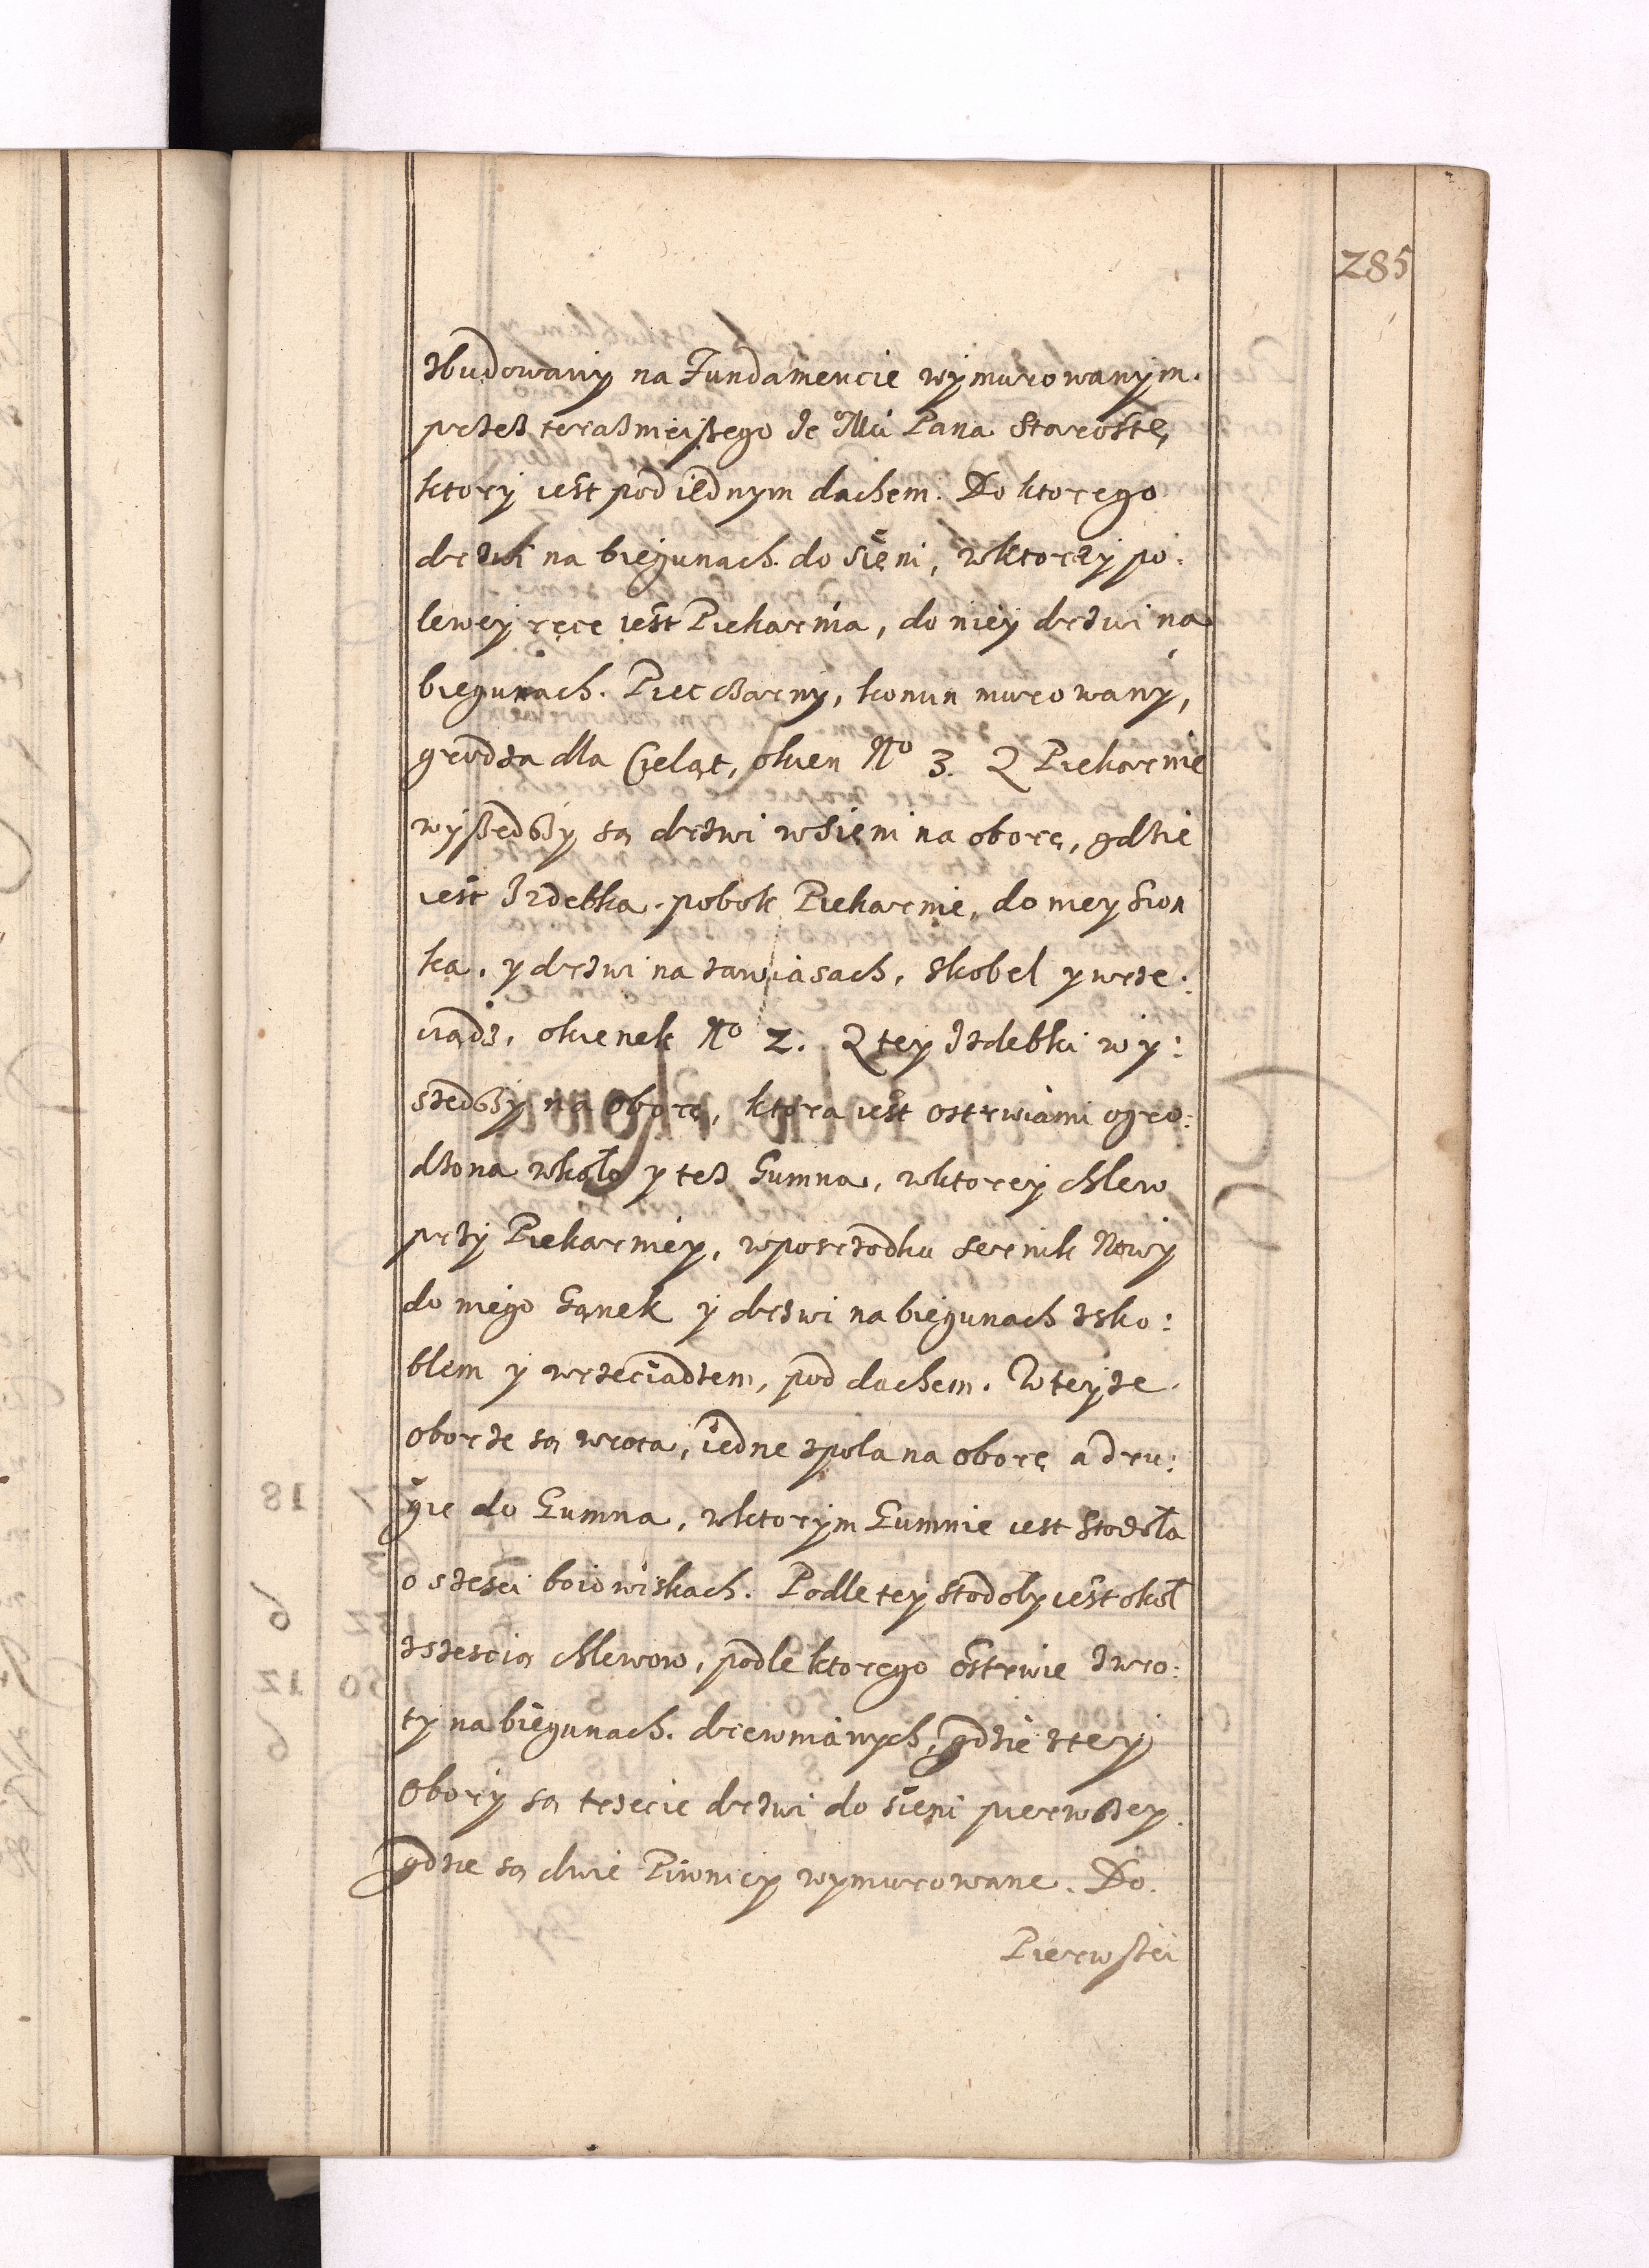 285
zbudowany na Fundamencie wymurowanym.
przez teraznieiszego Je Mci Pana Starostę,
ktory iest pod iednym dachem. Do ktorego
drzwi na biegunach. do sięni, wktorey po:
lewey ręce iest Piekarnia, do niey drzwi na
biegunach. Piec czarny, komin murowany,
grodza dla Cieląt, okien No 3. Z Piekarnie
wyszedszy są drzwi wsięni na oborę, gdzie
iest Izdebka. pobok Piekarnie, do niey Sion
ka. y drzwi na zawiasach, skobel y wrze:
ciądz, okienek No 2. Z tey Izdebki wy:
szedszy na oborę, ktora iest ostrwiami ogro:
dzona wkoło y tez Gumna, wktorey chlew
przy Piekarniey, wposrzodku sernik Nowy
do niego Ganek y drzwi na biegunach zsko:
blem y wrzeciądzem, pod dachem. W teyze.
oborze są wrota, iedne zpola na oborę a dru:
gie do Gumna, wktorym Gumnie iest Stodoła
o szesci boiowiskach. Podle tey stodoły iest okoł
zszescią chlewow, podle ktorego ostrwie zwro:
ty na biegunach. drewnianych, gdzie ztey
Obory są trzecie drzwi do sięni pierwszey.
gdzie są dwie Piwnicy wymurowane. Do.
Pierwszei